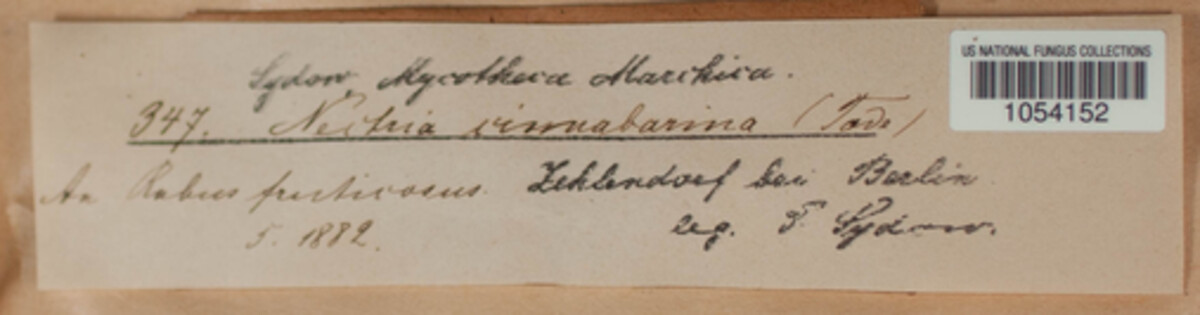 Sydow, Mycotheca Marchica.
US NATIONAL FUNGUS COLLECTIONS
1054152
347. Nectria cinnabarina (Tode)
An Rubus fruticosus. Zehlendorf bei Berlin
5. 1882. leg. P. Sydow.